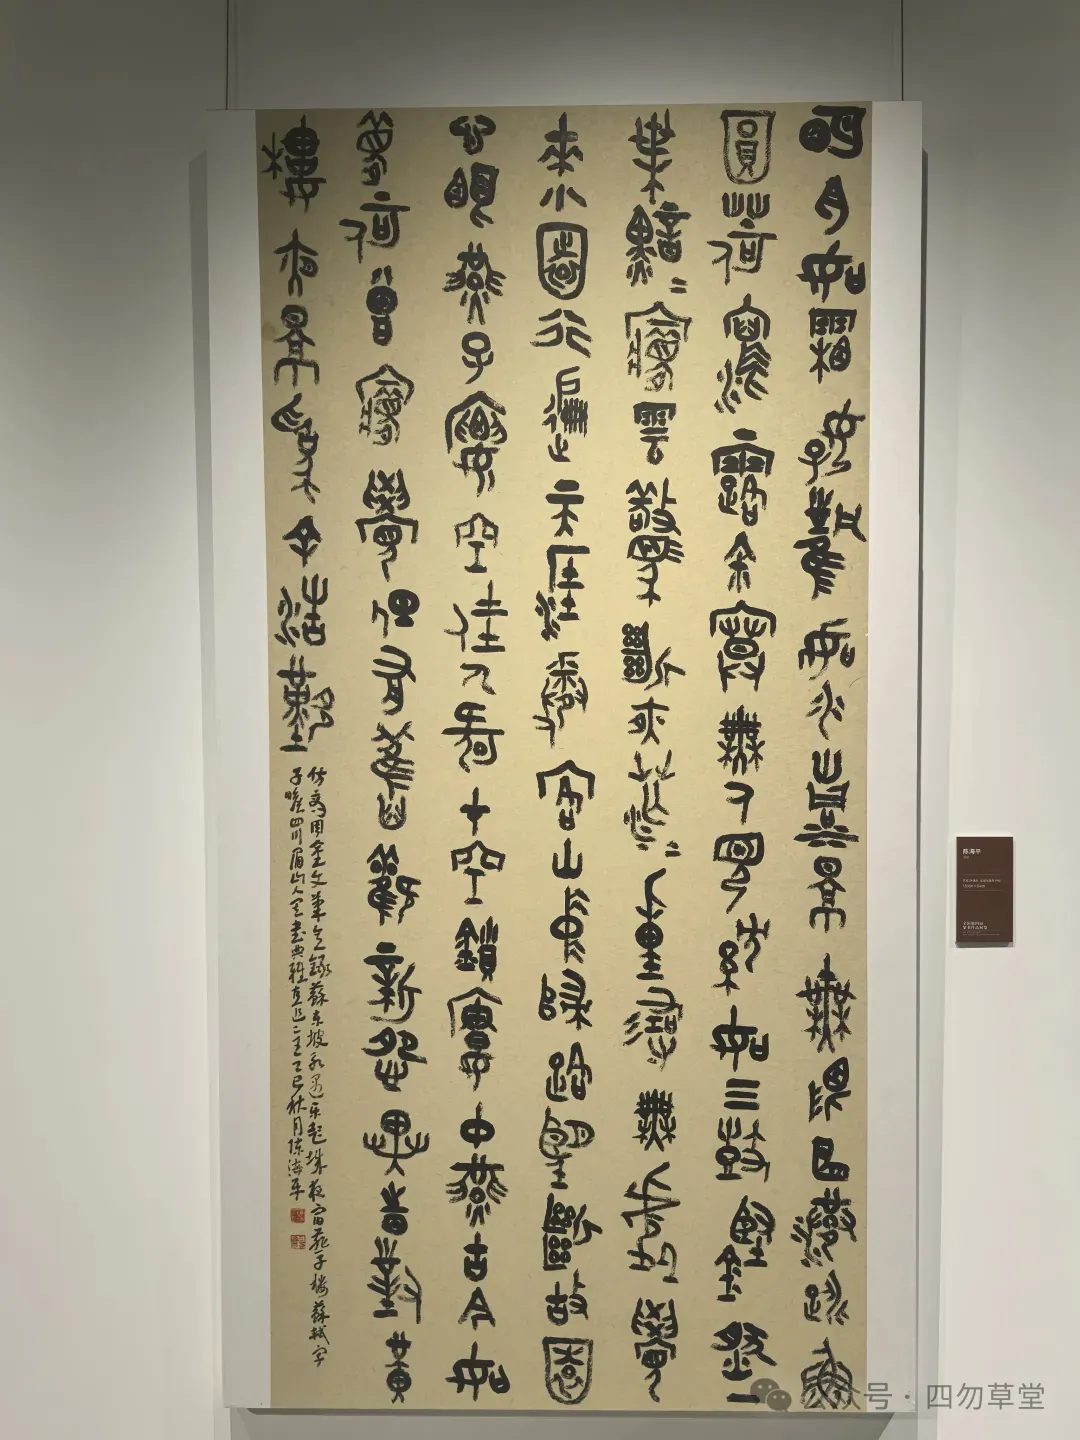 明月如霜好風如水清景無限曲港跳魚
圓荷瀉露寂寞無人見紞如三鼓鏗然一
葉黯〻夢雲驚斷夜茫〻重尋無處覺
來小園行遍天涯倦客山中歸路望斷故園
心眼燕子樓空佳人何在空鎖樓中燕古今如
夢何曾夢覺但有舊歡新怨異時對黃
樓夜景為余浩歎
用金文筆意錄蘇東坡永遇樂彭城夜宿燕子樓蘇軾字
子瞻四川眉山人書典雅直追二王乙巳秋月陳海平
陈海平
公众号·四勿草堂